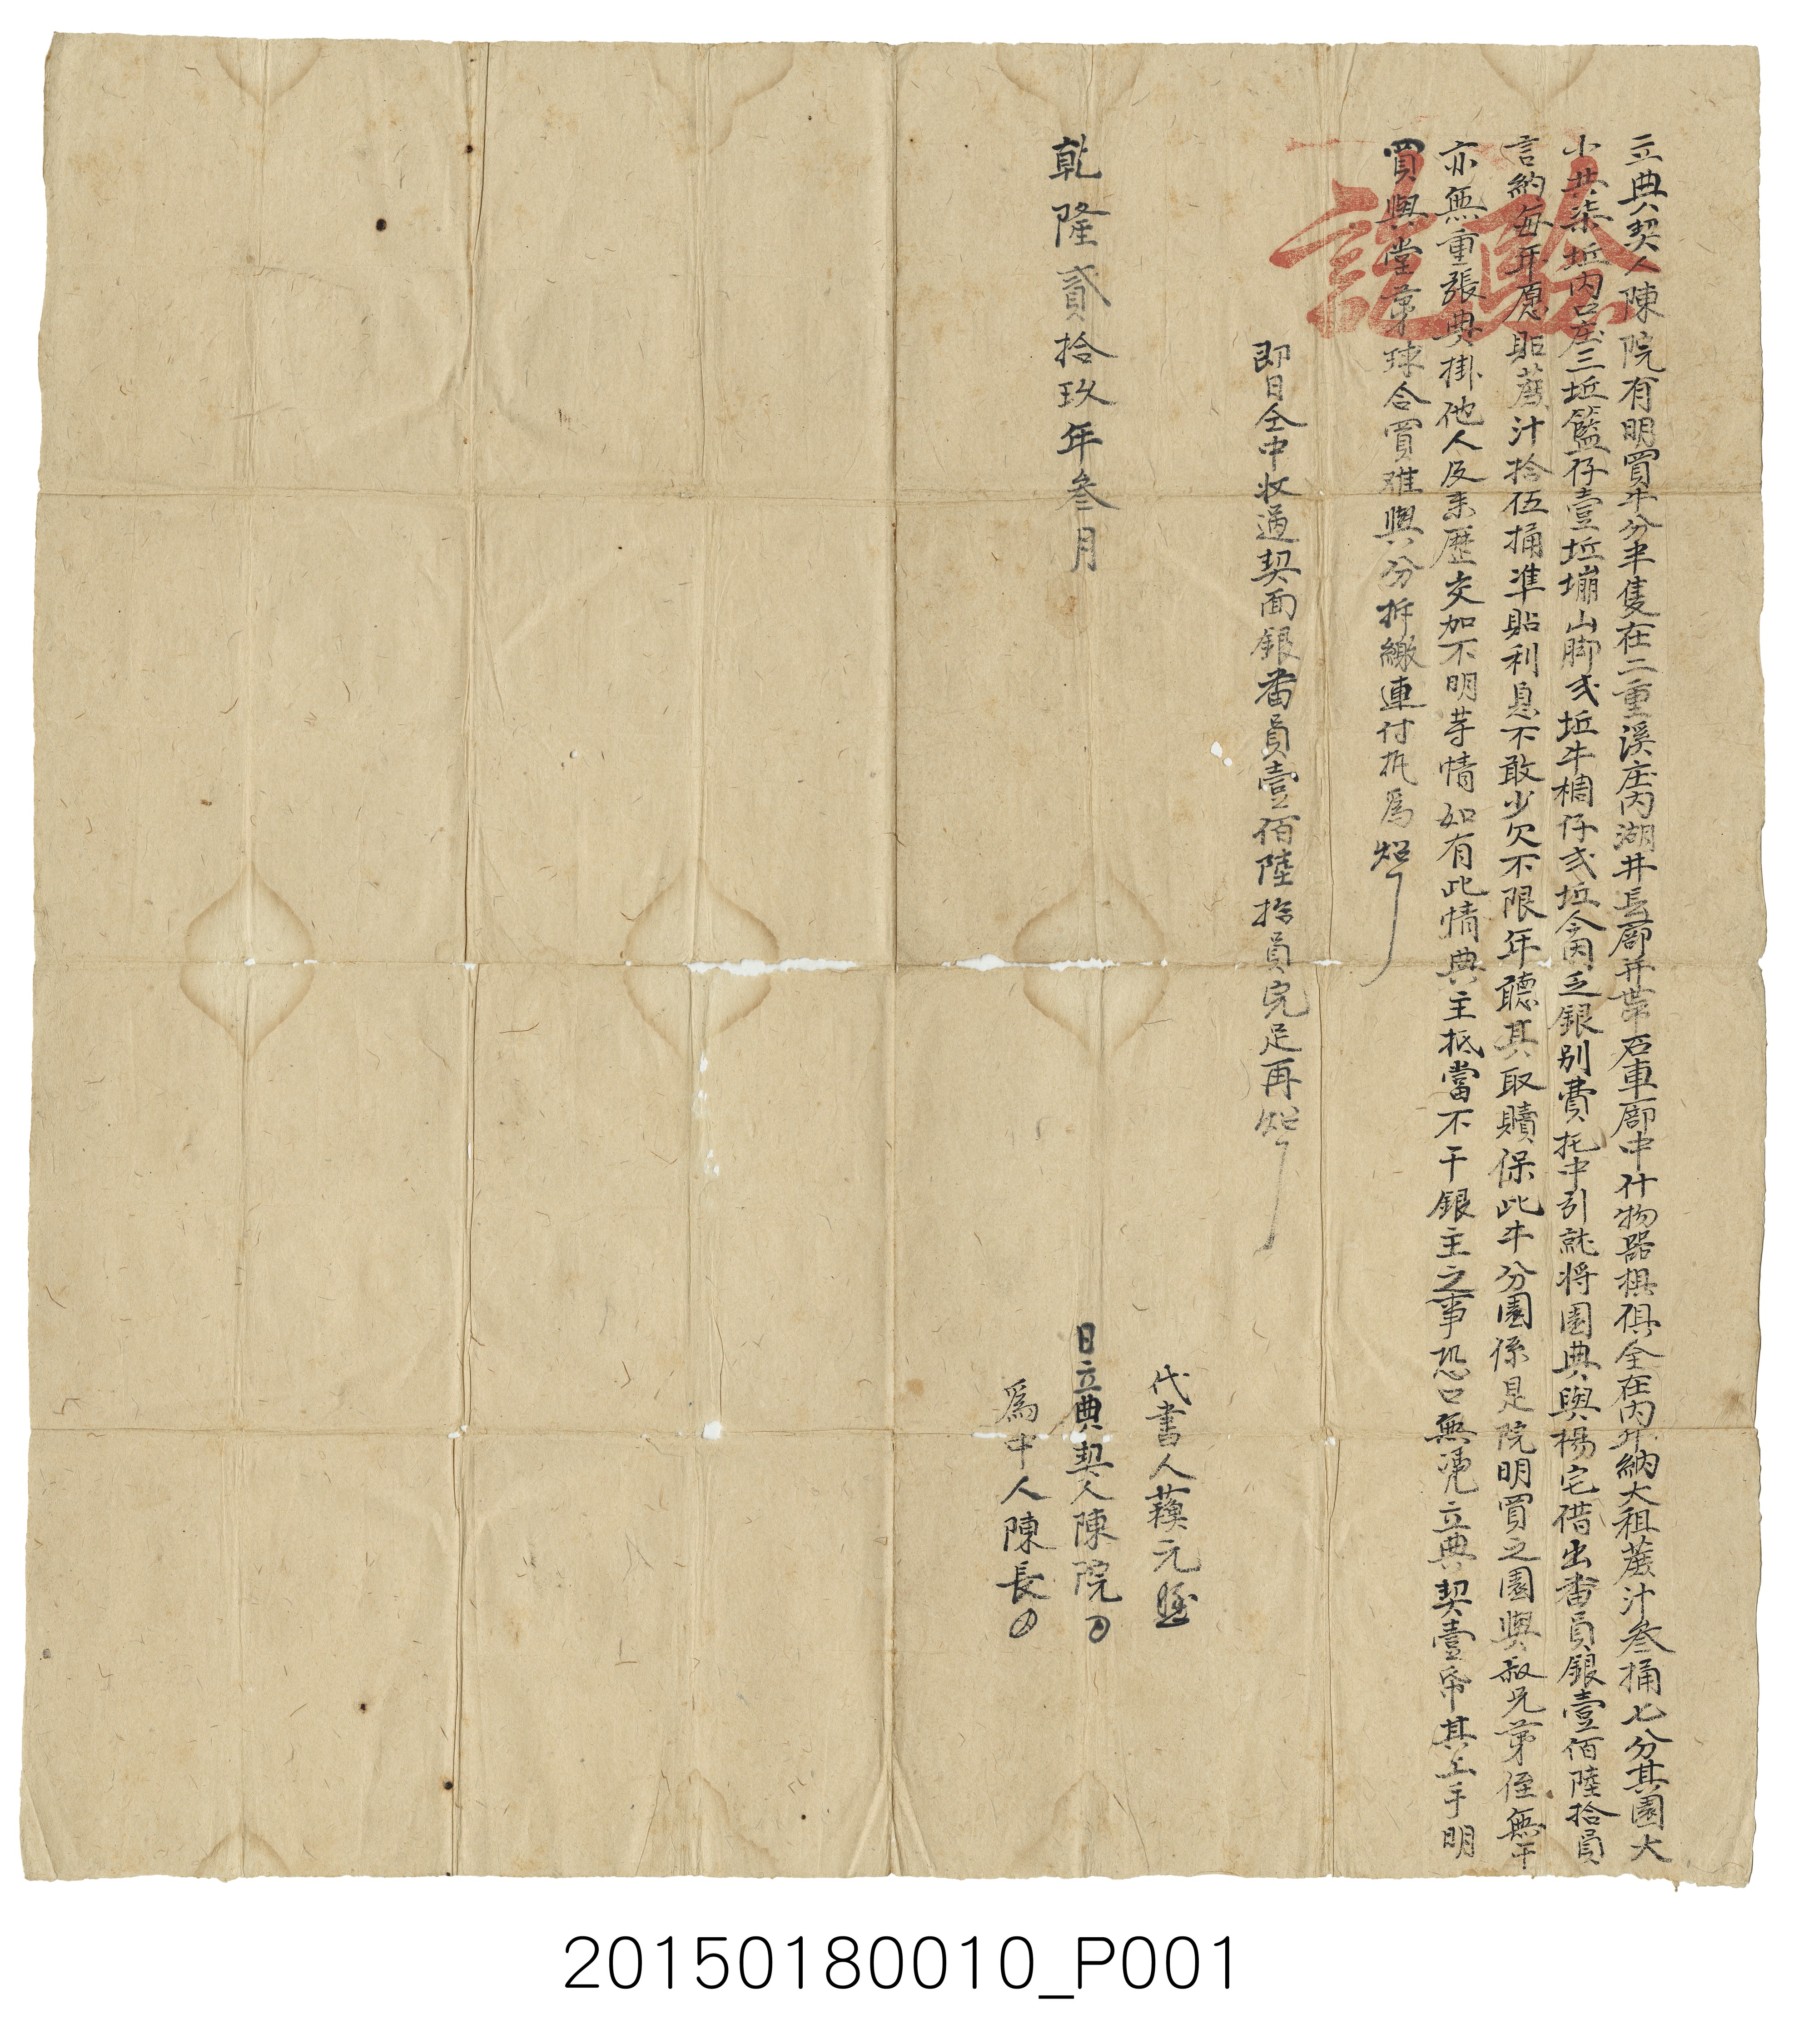 立典契人陳院有明買牛分半隻在二重溪庄内湖井長廍并帶石車廍中什物器棋俱全在内年納大租蔗汁叁捅七分其園大
小共柒坵内口庄三坵籃仔壹坵塴山脚弍坵牛椆仔弍坵今因乏銀别費托中引就将園典與楊宅借出番員銀壹佰陸拾員
言納每年愿貼蔗汁拾伍捅準貼利息不敢少欠不限年聽其取贖保此牛分園係是院明買之園與叔兄弟侄無干
亦無重張典掛他人及来歷交加不明等情如有此情典主抵當不干銀主之事恐口無凴立典契壹帋其上手明
買與堂弟球合買难與分拆繳連付执爲炤
即日仝中收過契面銀番員壹佰陸拾員完足再炤
代書人蘓元
乾隆貳拾玖年叁月 日立典契人陳院
爲中人陳長
驗訖
20150180010_P001